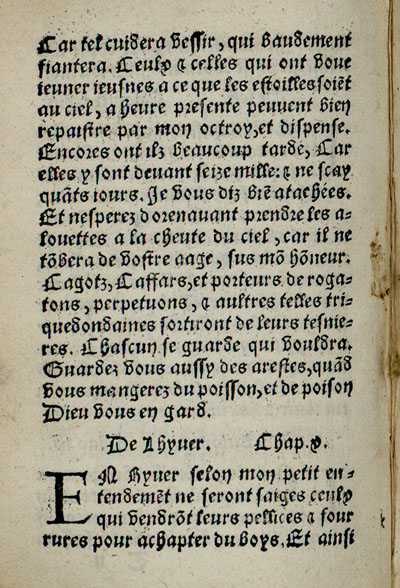 Car tel cuidera vessir, qui baudement
fiantera. Ceulx & celles qui ont voue
ieuner ieusnes a ce que les estoilles soiẽt
au ciel, a heure presente peuvent bien
repaistre par mon octroy, et dispense.
Encores ont ilz beaucoup tarde, Car
elles y sont devant seize mille: & ne scay
quãts iours. Je vous diz biẽ atachées.
Et nesperez dorenauant prendre les a-
louettes a la cheute du ciel, car il ne
tõbera de vostre aage, sus mõ hõneur.
Cagotz, Caffars, et porteurs de roga-
tons, perpetuons, & aultres telles tri-
quedondaines sortiront de leurs tesnie-
res. Chascun se guarde qui vouldra.
Guardez vous aussy des arestes, quãd
vous mangerez du poisson, et de poison
Dieu vous en gard.
De Lhyver. Chap. x.
EN Hyver selon mon petit en-
tendemẽt ne seront saiges ceulx
qui vendrõt leurs pellices & four
rures pour achapter du boys. Et ainsi